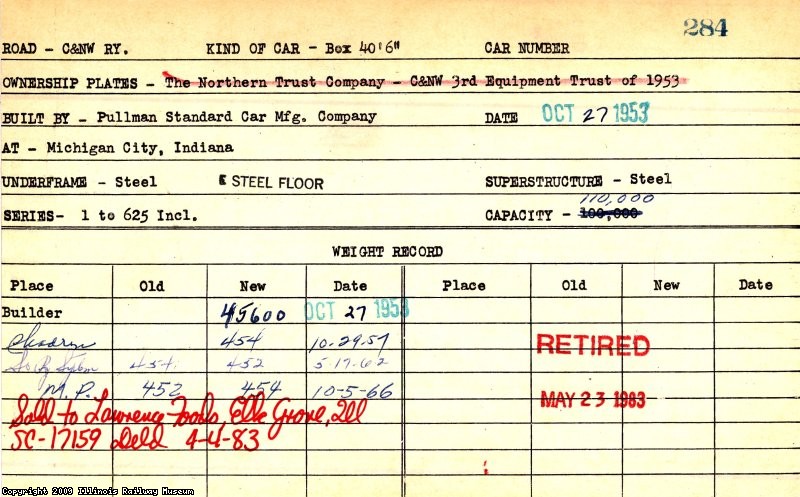 284
ROAD - C&NW RY. KIND OF CAR - Box 40'6" CAR NUMBER
OWNERSHIP PLATES - The Northern Trust Company - C&NW 3rd Equipment Trust of 1953
BUILT BY - Pullman Standard Car Mfg. Company DATE OCT 27 1953
AT - Michigan City, Indiana
UNDERFRAME - Steel STEEL FLOOR SUPERSTRUCTURE - Steel
110,000
SERIES- 1 to 625 Incl. CAPACITY - 100,000
WEIGHT RECORD
Place Old New Date Place Old New Date
Builder 45600 OCT 27 1953
Chadron 454 10-29-57
454 452 5-17-62
RETIRED
M.P. 452 454 10-5-66
MAY 23 1983
Sold to Lawrence Foods, Elk Grove, Ill
SC-17159 Deld 4-4-83
Copyright 2009 Illinois Railway Museum